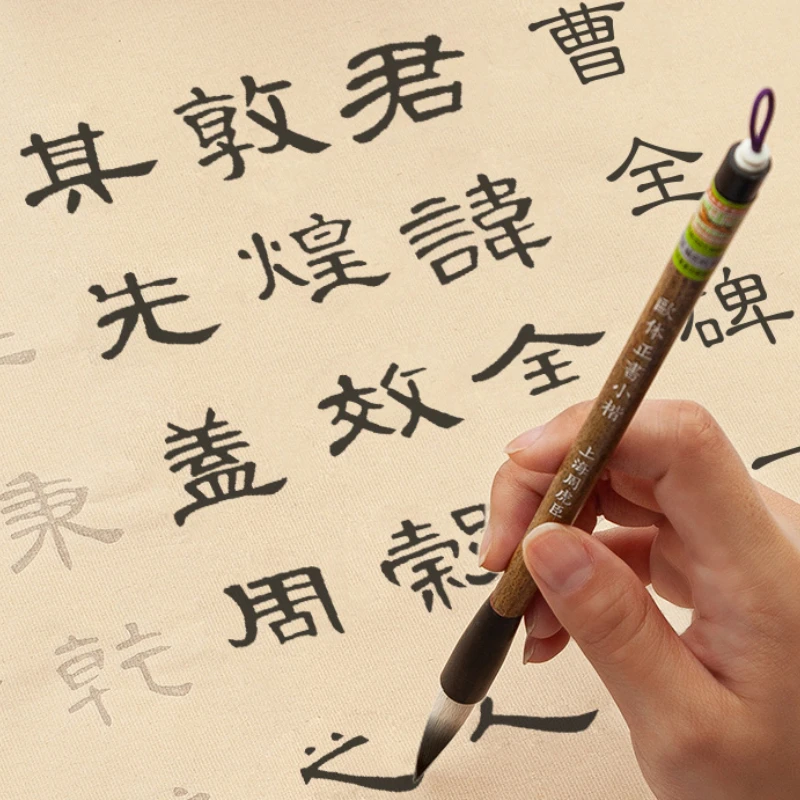 曹全碑
君諱全
敦煌效穀人
其先蓋周之
秉乾
歐体正書小楷 上海周虎臣